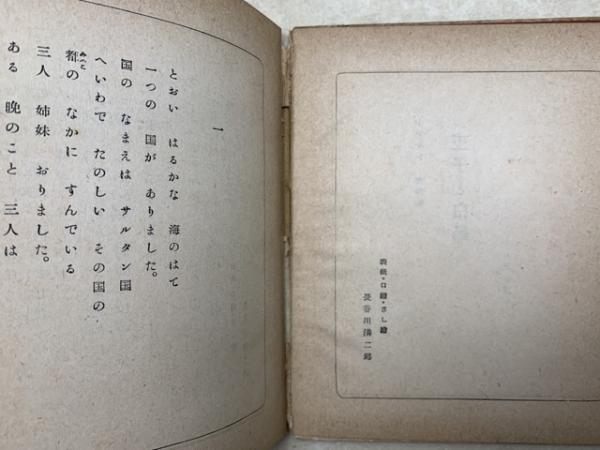 表紙・口繪・さし繪
長谷川潾二郎
一
とおい はるかな 海のはて
一つの 国が ありました。
国の なまえは サルタン国
へいわで たのしい その国の
都の なかに すんでいる
みやこ
三人 姉妹 おりました。
ある 晩のこと 三人は